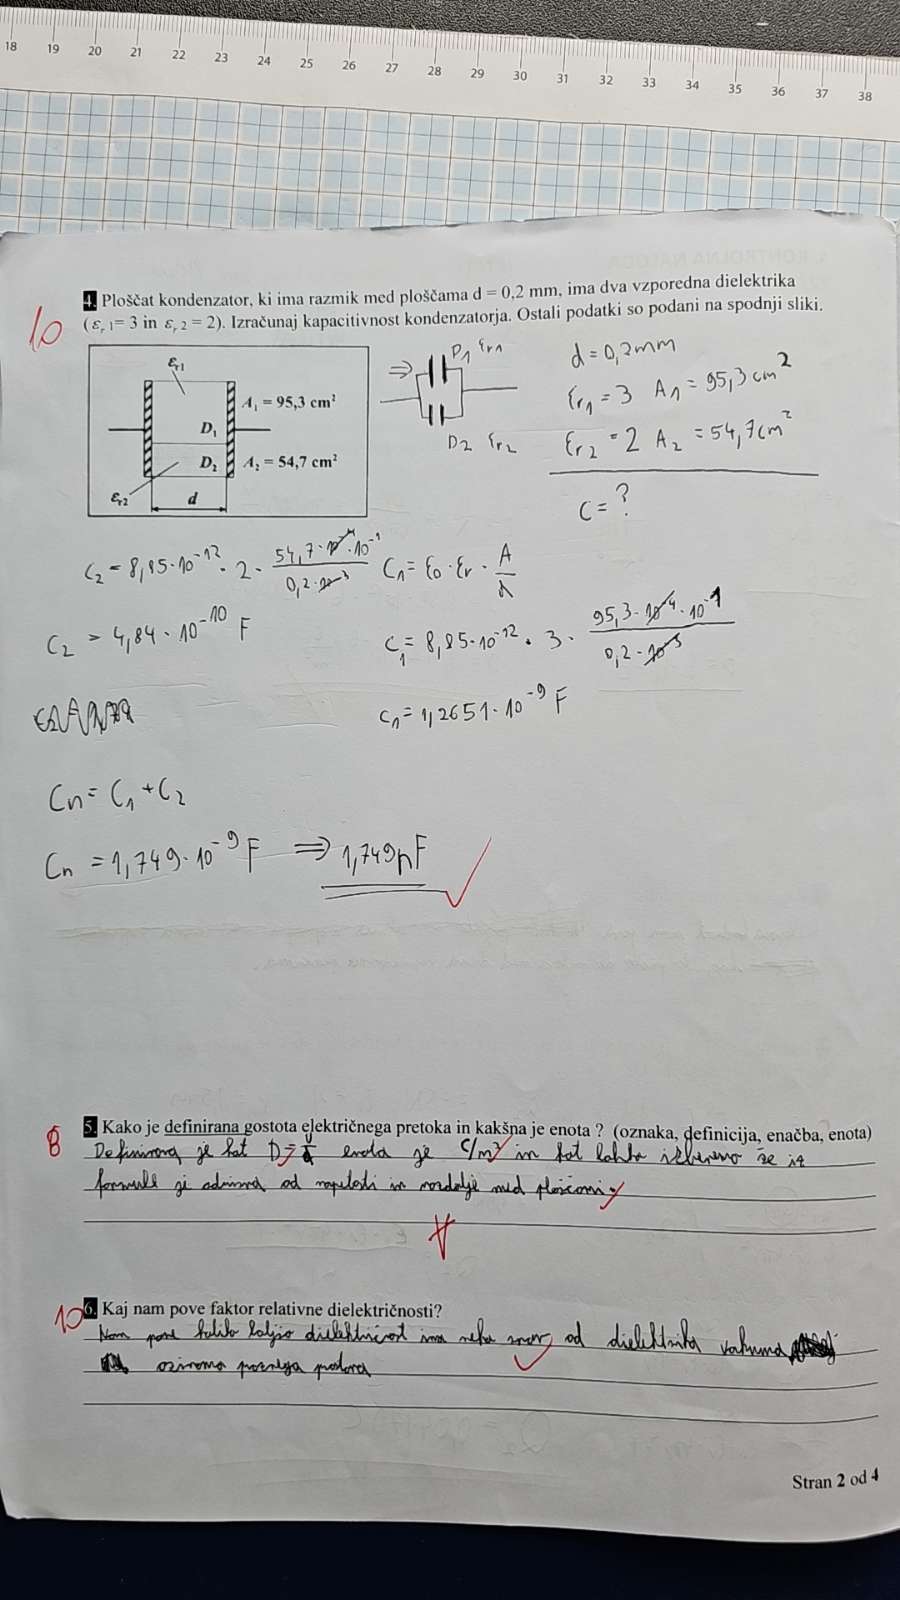 18 19 20 21 22 23 24 25 26 27 28 29 30 31 32 33 34 35 36 37 38
10
4. Ploščat kondenzator, ki ima razmik med ploščama d = 0,2 mm, ima dva vzporedna dielektrika
(εr 1 = 3 in εr 2 = 2). Izračunaj kapacitivnost kondenzatorja. Ostali podatki so podani na spodnji sliki.
εr1
A1 = 95,3 cm²
D1
D2
A2 = 54,7 cm²
εr2
d
⇒
D1 εr1
D2 εr2
d = 0,2mm
εr1 = 3 A1 = 95,3 cm²
εr2 = 2 A2 = 54,7cm²
C = ?
C2 = 8,85·10⁻¹² · 2 · 54,7·10⁻⁴·10⁻¹ / 0,2·10⁻³
C1 = ε0 · εr · A / d
C2 = 4,84 · 10⁻¹⁰ F
C1 = 8,85·10⁻¹² · 3 · 95,3·10⁻⁴·10⁻¹ / 0,2·10⁻³
C1 = 1,2651·10⁻⁹ F
Cn = C1 + C2
Cn = 1,749·10⁻⁹ F ⇒ 1,749nF
8
5. Kako je definirana gostota električnega pretoka in kakšna je enota ? (oznaka, definicija, enačba, enota)
Definirana je kot D = enota je C/m² in kot lahko že iz
formule je od napetosti in razdalje med ploščami
10
6. Kaj nam pove faktor relativne dielektričnosti?
Nam pove koliko boljšo dielektričnost ima neka snov od dielektrika vakuma
oziroma praznega prostora
Stran 2 od 4